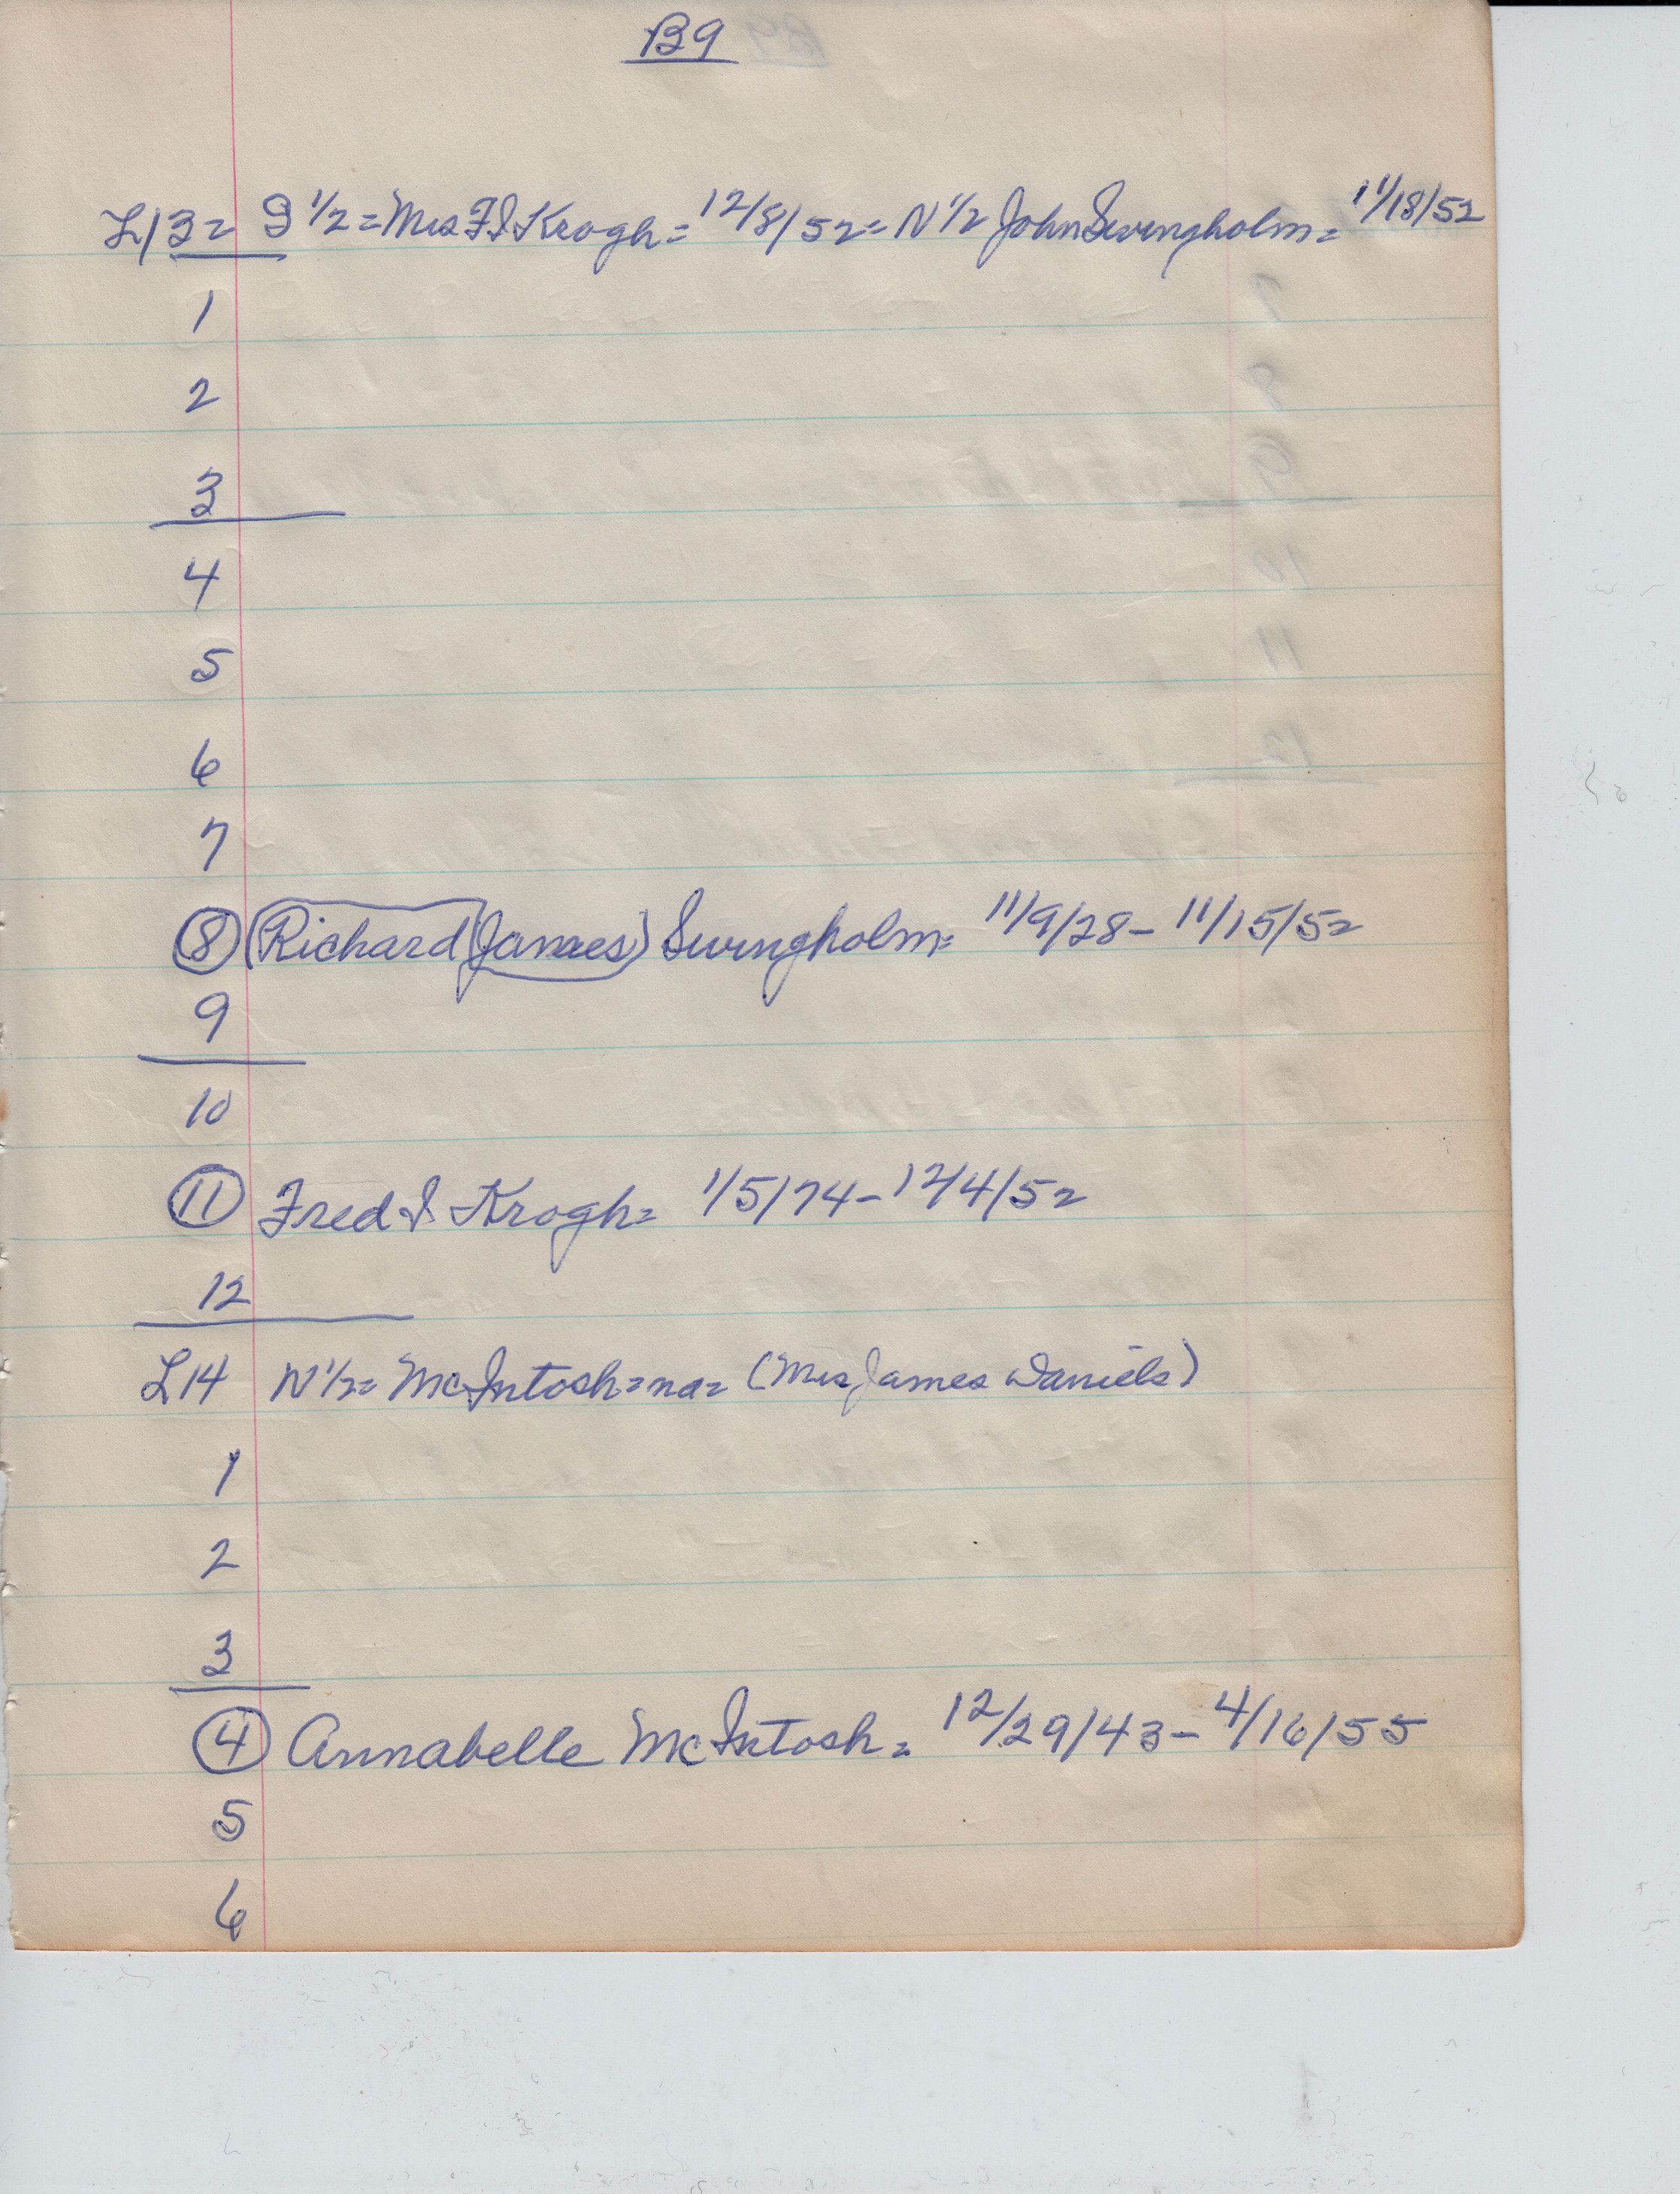 B9
L13= S 1/2=Mrs F I Krogh= 12/8/52= N 1/2 John Swingholm= 11/18/52
1
2
3
4
5
6
7
8 (Richard (James) Swingholm= 11/9/28-11/15/52
9
10
11 Fred I Krogh= 1/5/74-12/4/52
12
L14 N 1/2= McIntosh=na= (Mrs James Daniels)
1
2
3
4 Annabelle McIntosh= 12/29/43-4/16/55
5
6